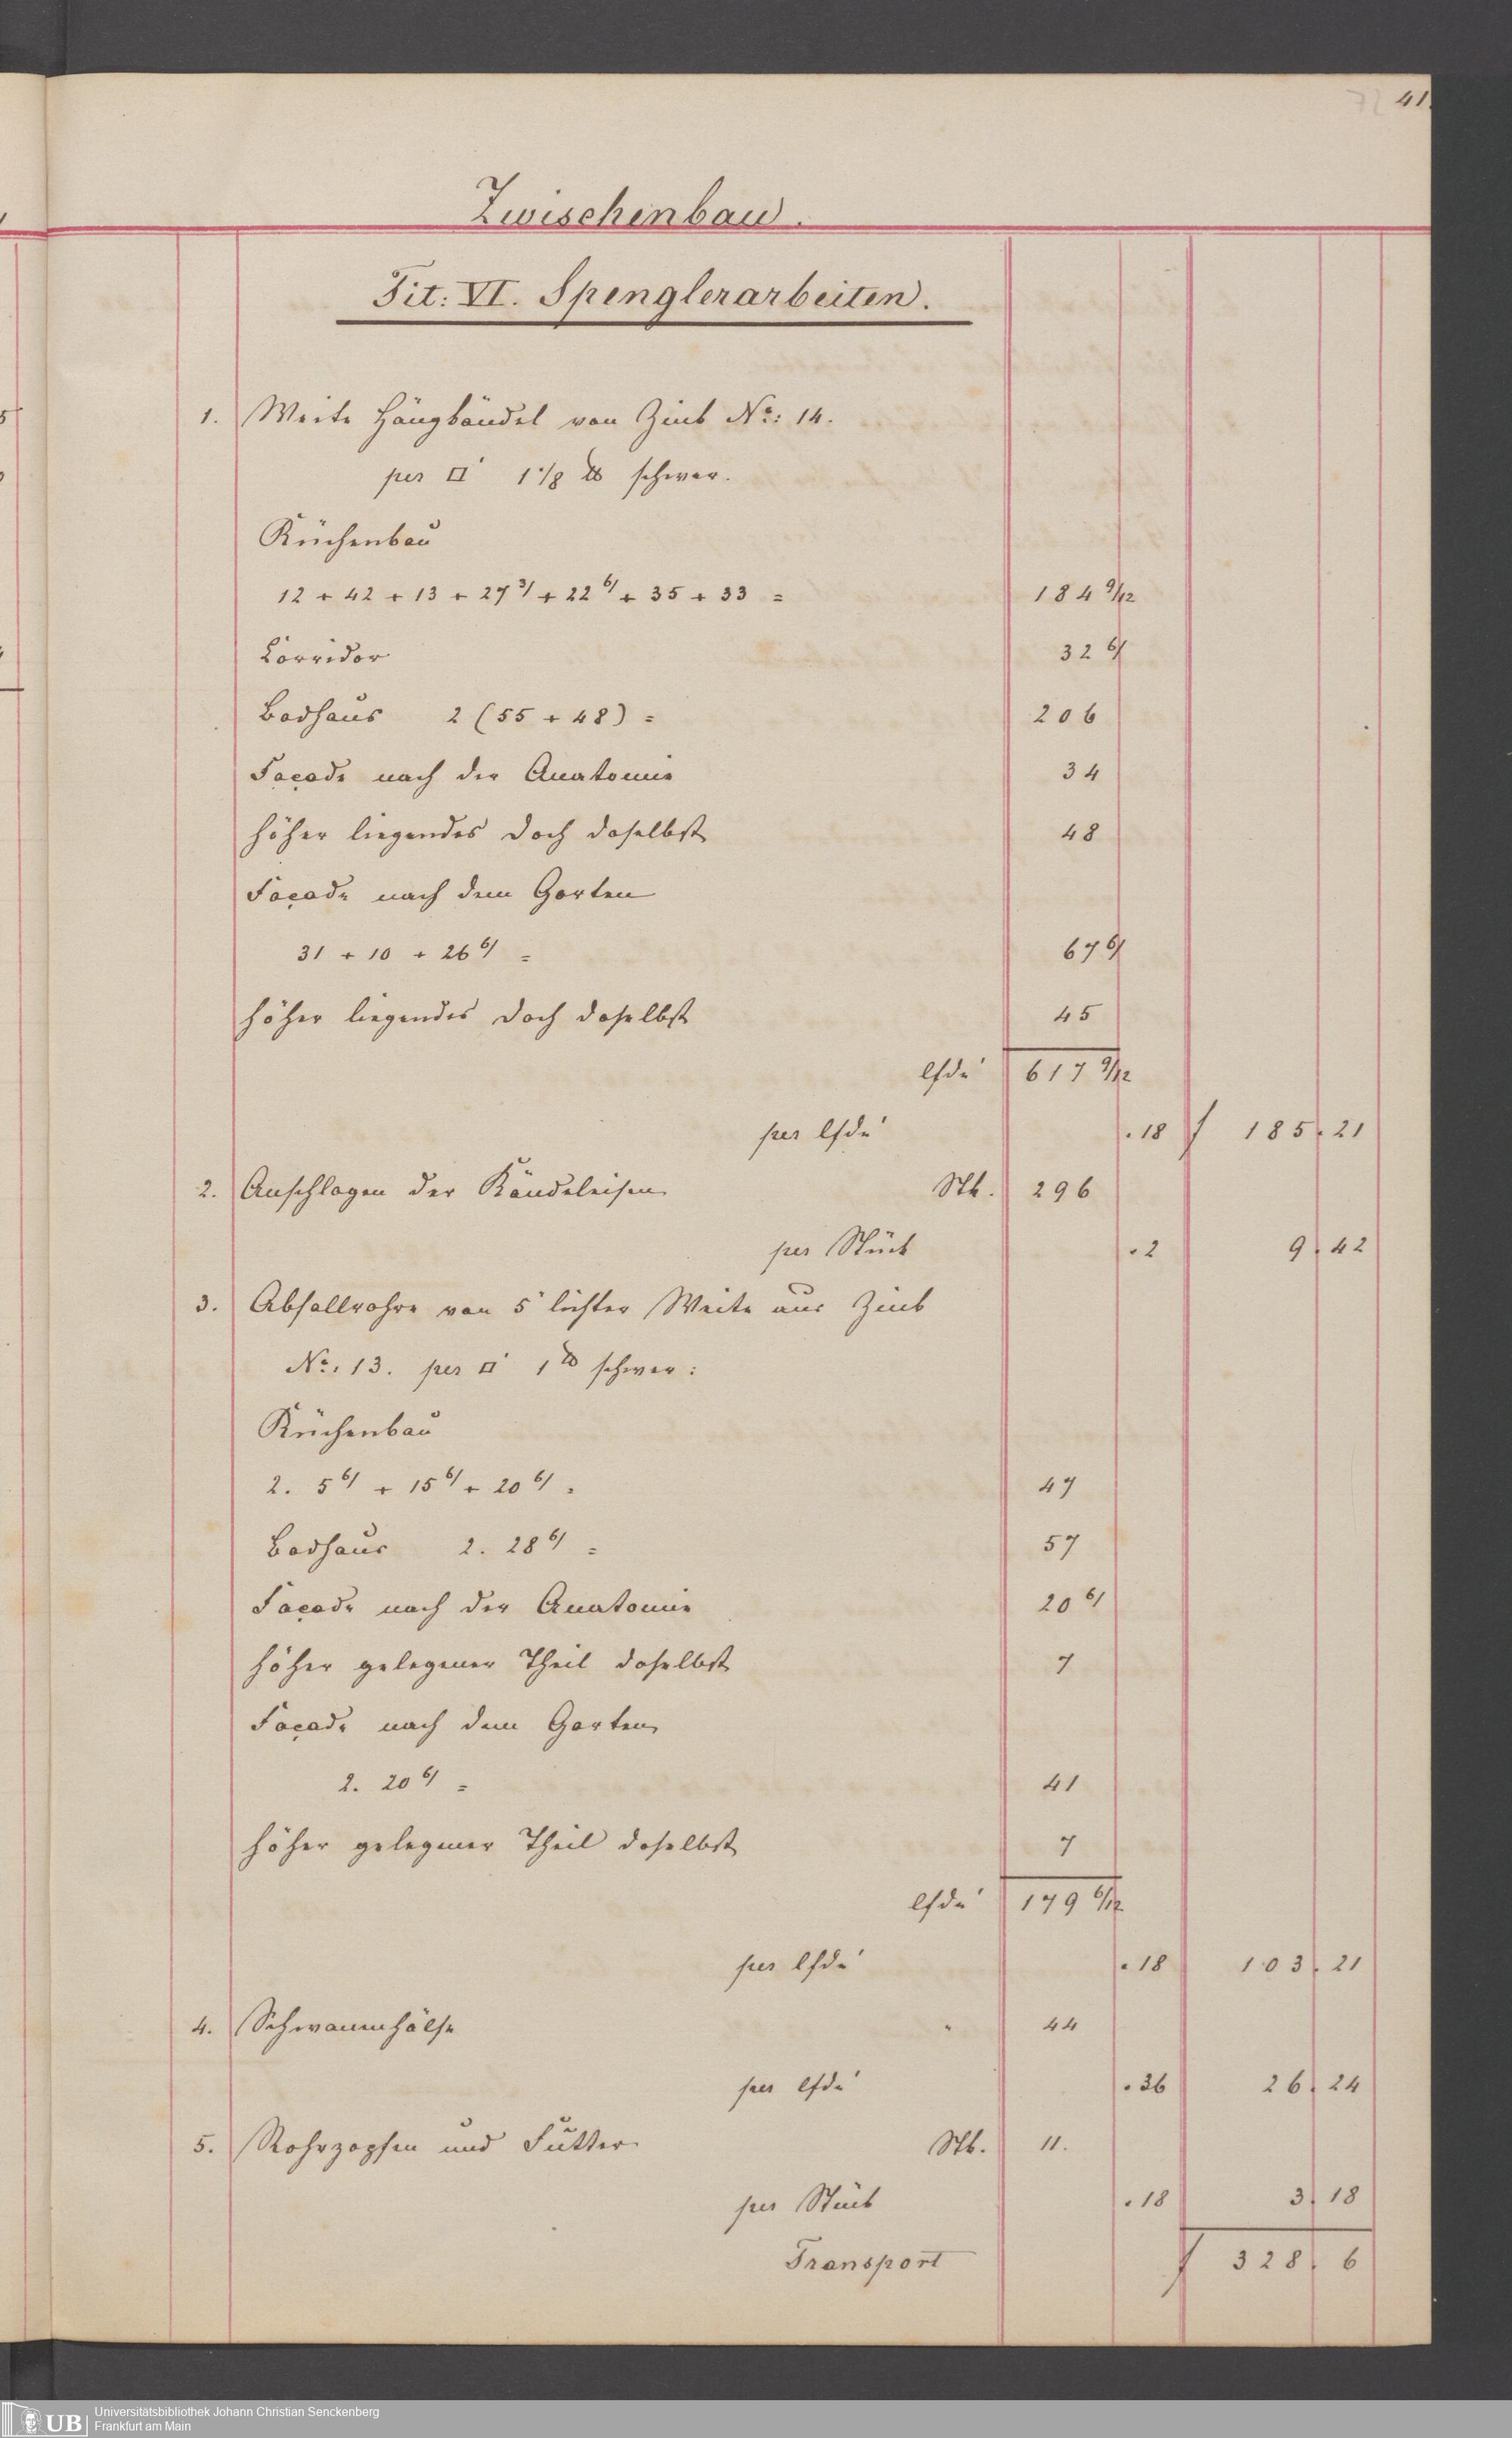 41.
Zwischenbau.
Tit: VI. Spenglerarbeiten.
1. Weite Hängkändel von Zink No: 14.
per □' 1 1/8 ℔ schwer.
Küchenbau
12 + 42 + 13 + 27 3/ + 22 6/ + 35 + 33 = 184 9/12
Corridor 32 6/
Badhaus 2 (55 + 48) = 206
Façade nach der Anatomie 34
höher liegendes Dach daselbst 48
Façade nach dem Garten
31 + 10 + 26 6/ = 67 6/
höher liegendes Dach daselbst 45
lfde' 617 9/12
per lfde' . 18 f 185. 21
2. Anschlagen der Kändeleisen Stk. 296
per Stück . 2 9. 42
3. Abfallrohre von 5" lichter Weite aus Zink
No: 13. per □' 1 ℔ schwer:
Küchenbau
2. 5 6/ + 15 6/ + 20 6/ = 47
Badhaus 2. 28 6/ = 57
Façade nach der Anatomie 20 6/
höher gelegener Theil daselbst 7
Façade nach dem Garten
2. 20 6/ = 41
höher gelegener Theil daselbst 7
lfde' 179 6/12
per lfde' . 18 103. 21
4. Schwanenhälse " 44
per lfde' . 36 26. 24
5. Rohrzapfen und Futter Stk. 11.
per Stück . 18 3. 18
Transport f 328. 6
UB
Universitätsbibliothek Johann Christian Senckenberg
Frankfurt am Main